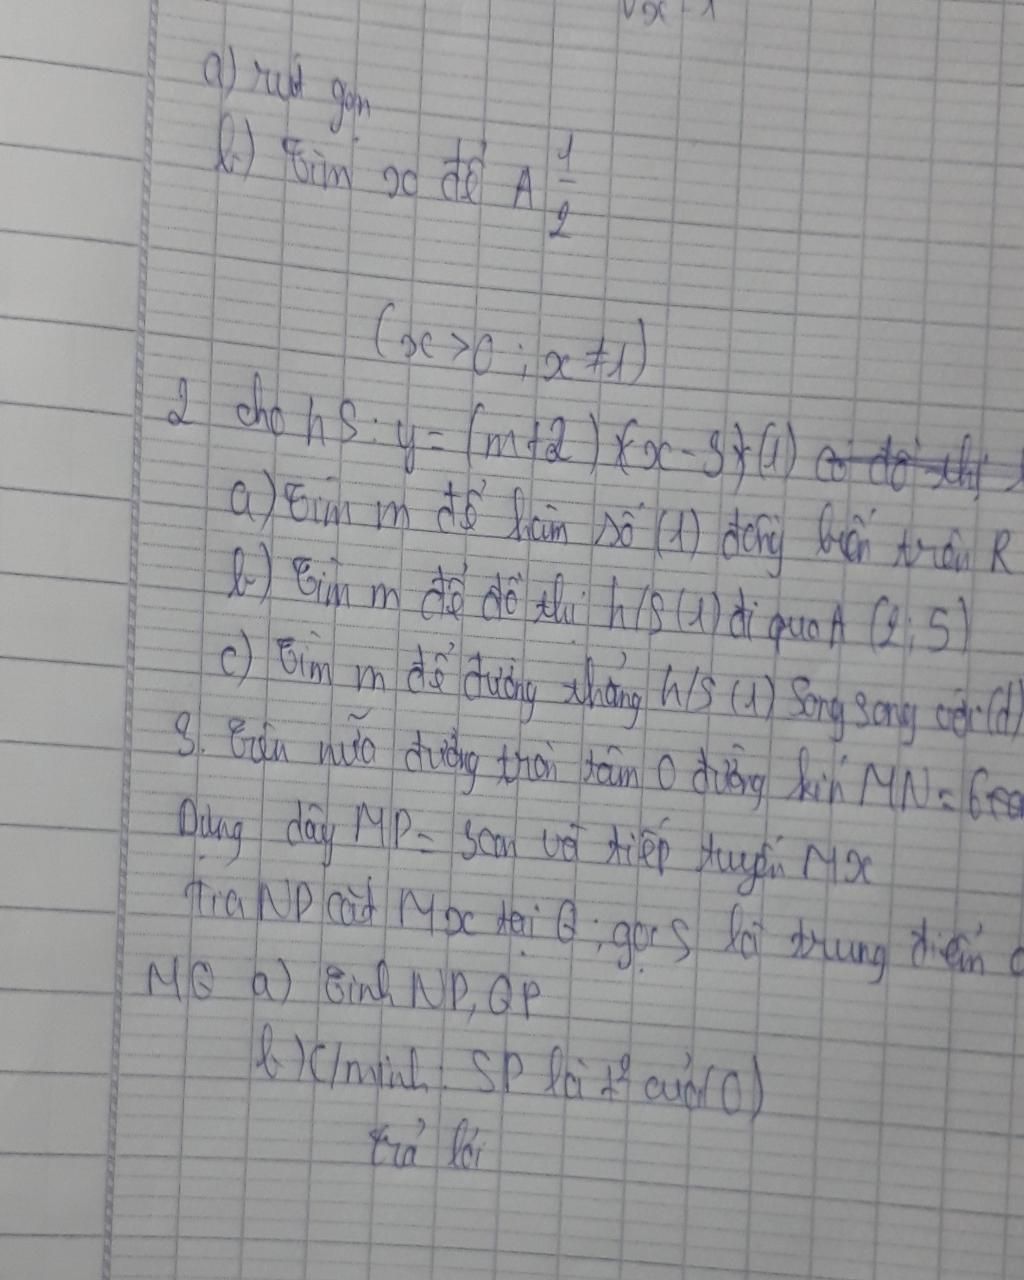 √x - 1
a) rút gọn
b) Tìm x để A 1/2
(x > 0 ; x ≠ 1)
2 cho hS: y = (m+2) (x - 3) (1) có đồ thị
a) Tìm m để hàm số (1) đồng biến trên R
b) Tìm m để đồ thị h/s (1) đi qua A (2; 5)
c) Tìm m để đường thẳng h/s (1) song song với (d)
3. Trên nửa đường tròn tâm O đường kín MN = 6cm
Dựng dây MP = 3cm vẽ tiếp tuyến Mx
tia NP cắt Mx tại Q ; gọi S là trung điểm
MQ a) Tính NP, QP
b) C/minh : SP là t² của (O)
trả lời